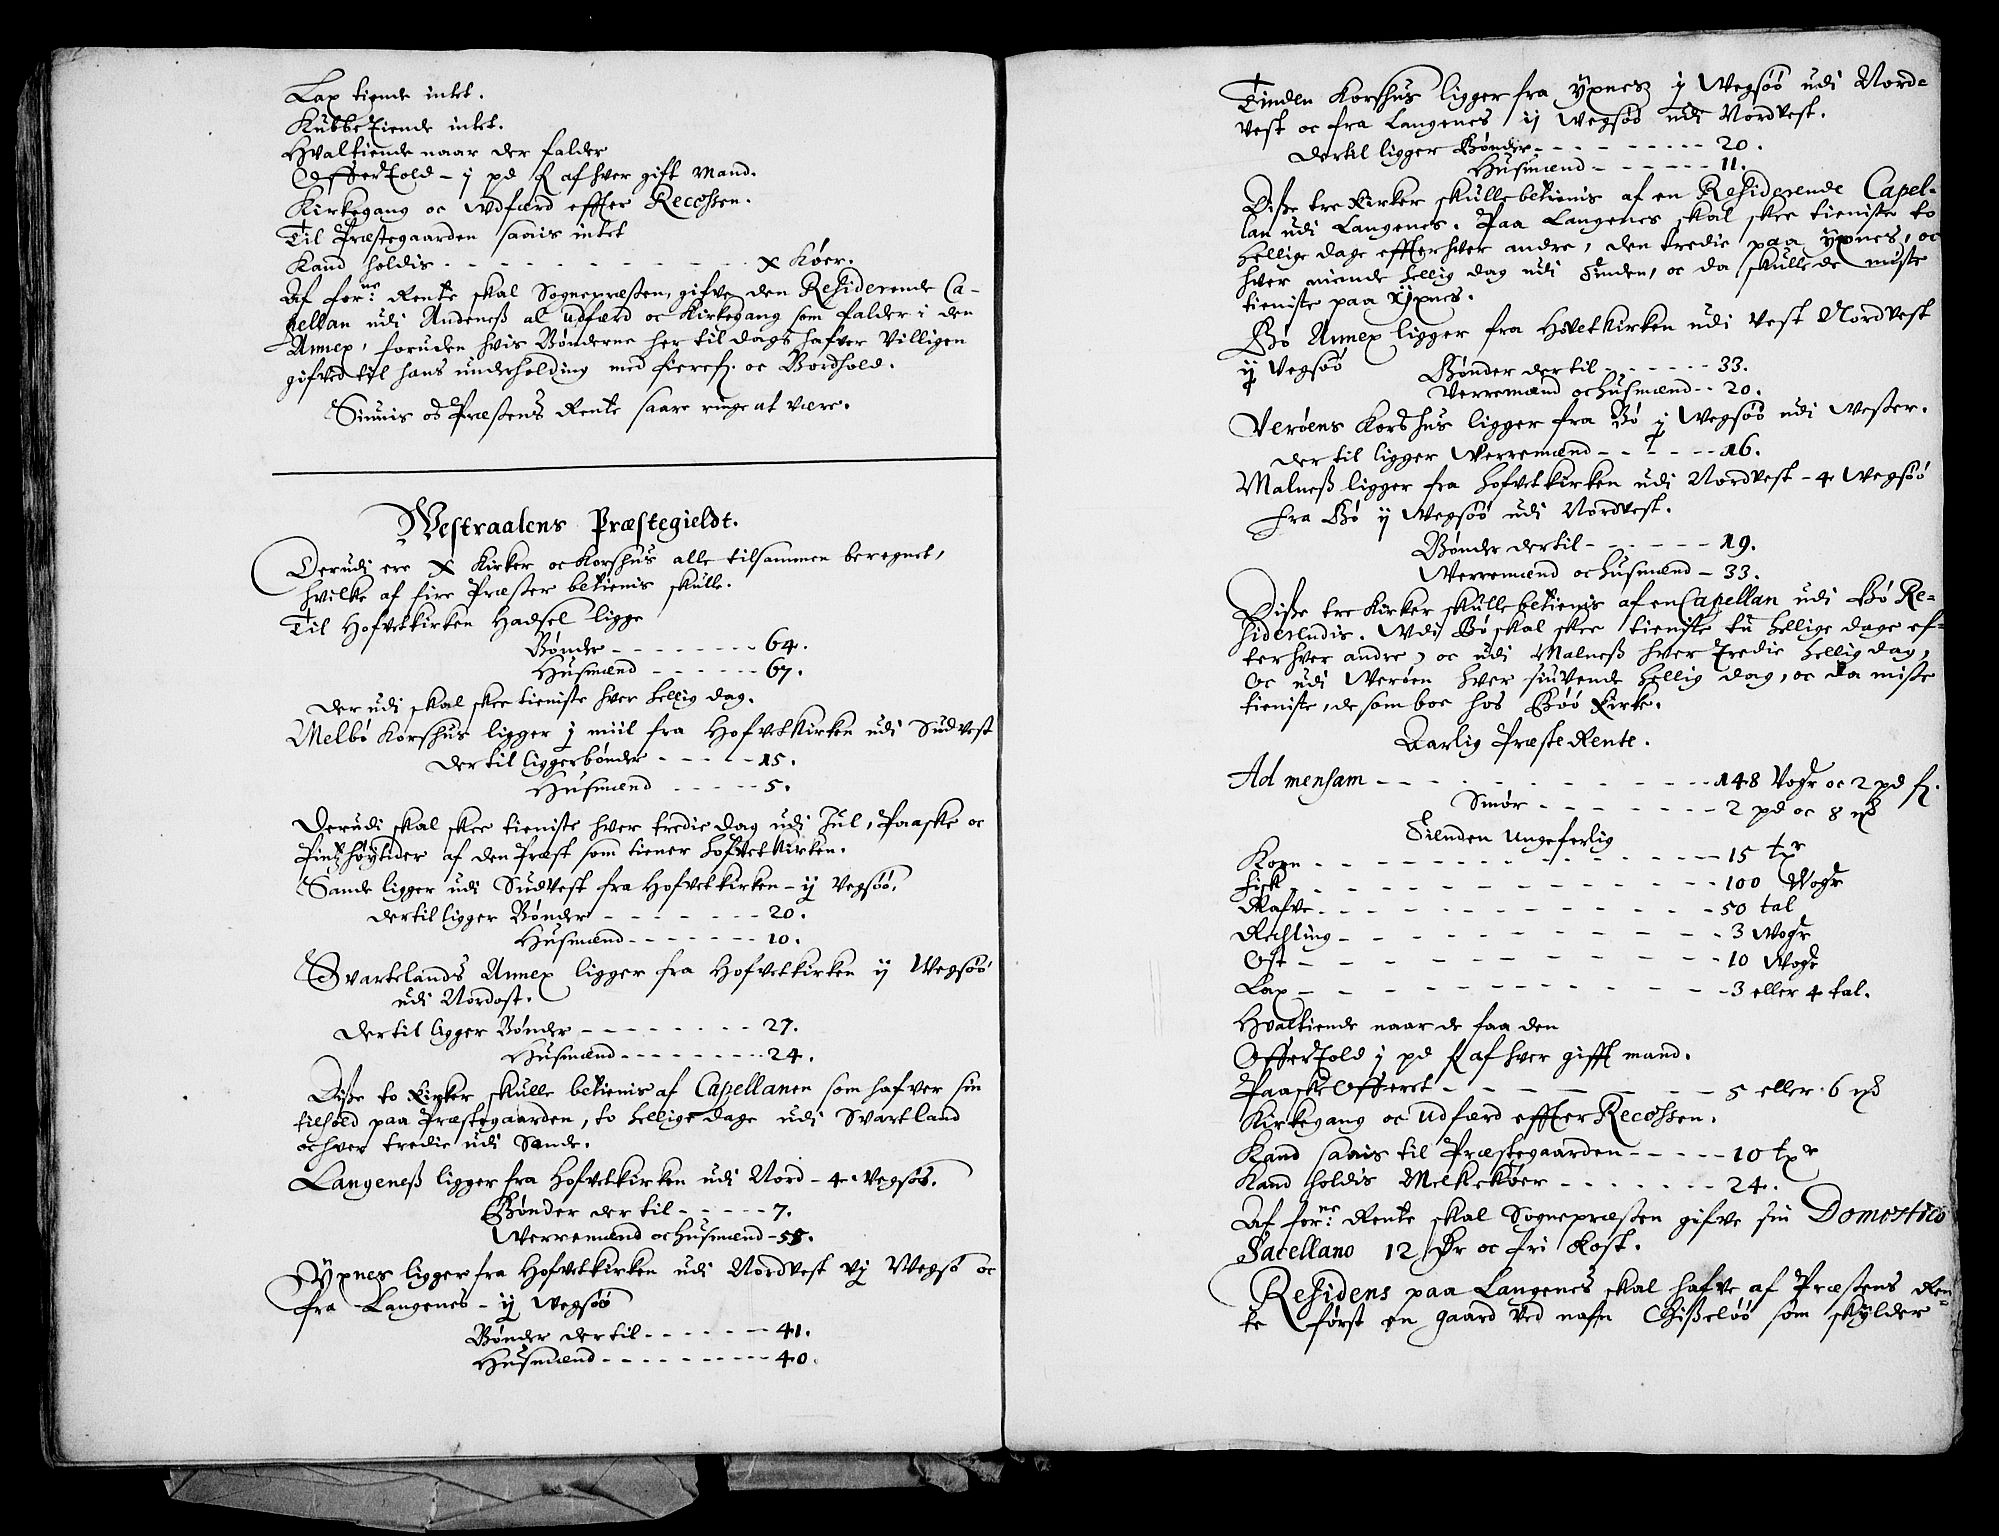 Lax tiende intet.
Kubbe Tiende intet.
Hvaltiende naar der falder
Offertold - j pd af hver gift Mand.
Kirkegang oc Udfærd effter Recessen.
Til Præstegaarden saais intet
Kand holdis - - - - - - - - - - x Køer.
Af forne: Rente skal Sognepræsten, gifve den Residerende Ca-
pellan udi Andeneß al udfærd oc Kirkegang som falder i den
Annex, foruden hvis Bønderne her til dags hafver Villigen
gifved til hans underholding med fierefz. oc Bordhold.
Siunis os Præstens Rente saare ringe at være.
Westraalens Præstegieldt.
Derudi ere X Kirker oc Korshus alle tilsammen beregnet,
hvilke af fire Præster betienis skulle.
Til Hofvetkirken Hadsel ligge
Bønder - - - - - - - - 64.
Husmænd - - - - - - 67.
Der udi skal skee tieniste hver hellig dag.
Melbo Korshus ligger j miil fra Hofvetkirken udi Sudvest
Der til ligger bønder - - - - - 15.
Husmænd - - - - - 5.
Derudi skal skee tieniste hver tredie dag udi Jul, Paaske oc
Pintzhøytider af den Præst som tiener Hofvetkirken.
Sande ligger udi Sudvest fra Hofvetkirken - ij Vegsøø.
Dertil ligger Bønder - - - - - - - 20.
Husmænd - - - - - - - 10.
Svartelands Annex ligger fra Hofvetkirken ij Wegsøø
udi Nordost.
Dertil ligger Bønder - - - - - - - - 27.
Husmænd - - - - - - - - 24.
Diße to Kirker skulle betienis af Capellanen som hafver sin
tilhold paa Præstegaarden, to hellige dage udi Svartland
oc hver tredie udi Sande.
Langeneß ligger fra Hofvetkirken udi Nord - 4 Vegsøs.
Bønder der til - - - - - 7.
Werremænd oc husmænd - 58.
Yxnes ligger fra Hofvetkirken udi Nordvest vj Wegsø oc
fra Langenes - ij Wegsøø
Bønder der til - - - - - - 41.
Husmænd - - - - - - - - 40.
Tinden Korshus ligger fra Yxnes ij Wegsøø udi Nord-
vest oc fra Langenes ij Wegsøø udi Nordvest.
Dertil ligger Bønder - - - - - - - - 20.
Husmænd - - - - - - 11.
Diße tre Kirker skulle betienis af en Residerende Capel-
lan udi Langenes. Paa Langenes skal skee tieniste to
hellige dage effter hver andre, den tredie paa Yxnes, oc
hver niende hellig dag udi Tinden, oc da skulle de miste
tieniste paa Yxnes.
Bø Annex ligger fra Hovetkirken udi Vest Nordvest
ij Vegsøø
Bønder der til - - - - - - 33.
Verremænd oc husmænd - - 20.
Verøens Korshus ligger fra Bø j Wegsøø udi Wester.
der til ligger Werremænd - - - - - 16.
Malneß ligger fra Hofvetkirken udi Nordvest - 4 Wegsøø
fra Bø ij Wegsøø udi Nordvest.
Bønder dertil - - - - - - 19.
Werremænd oc husmænd - 33.
Diße tre Kirker skulle betienis af en Capellan udi Bø Re-
siderendis. Udi Bø skal skee tieniste tu hellige dage ef-
ter hver andre, oc udi Malneß hver tredie hellig dag,
Oc udi Werøen hver siuvende hellig dag, oc da miste
tieniste, de som boe hos Bøø Kirke.
Aarlig Præste Rente.
Ad mensam - - - - - - - - - - 148 Vogr oc 2 pd fz.
Smør - - - - - - 2 pd oc 8 mk
Tienden Ungeferlig
Korn - - - - - - - - - - - - 15 tr
Fisk - - - - - - - - - - - - 100 Wogr
Rafve - - - - - - - - - - - - 50 tal
Rechling - - - - - - - - - - - 3 Wogr
Ost - - - - - - - - - - - - 10 Wogr
Lax - - - - - - - - - - - - 3 eller 4 tal.
Hvaltiende naar de faa den
Offertold j pd af hver gifft mand.
Paaske Offeret - - - - - - - 5 eller 6 mk
Kirkegang oc udfærd effter Recessen.
Kand saais til Præstegaarden - - - - - 10 tr
Kand holdis Melkekøer - - - - - - - 24.
Af forne: Rente skal Sognepræsten gifve sin Domestico
Sacellano 12 Dr oc fri Kost.
Residens paa Langenes skal hafve af Præstens Ren-
te først en gaard ved nafn Gißeløø som skylder